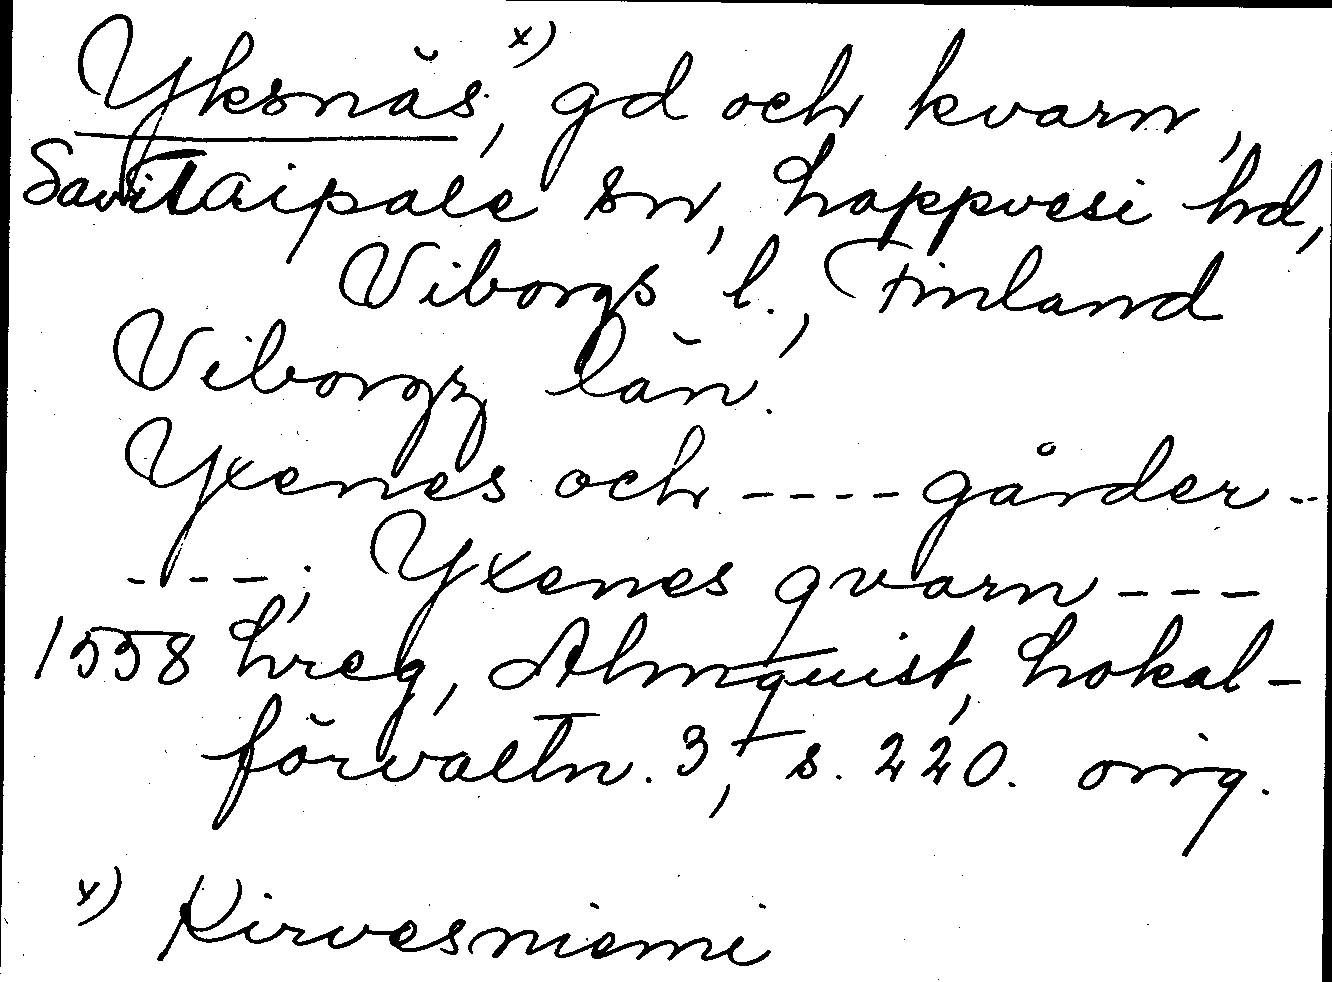 Yksnäs, x) gd och kvarn,
Savitaipale sn, Lappvesi hd,
Viborgs l., Finland
Viborgz län.
Yxenes och ---- gårder --
---; Yxenes qvarn ---
1558 Lreg, Almquist, Lokal-
förvaltn. 3, s. 220. orig.
x) Kirvesniemi